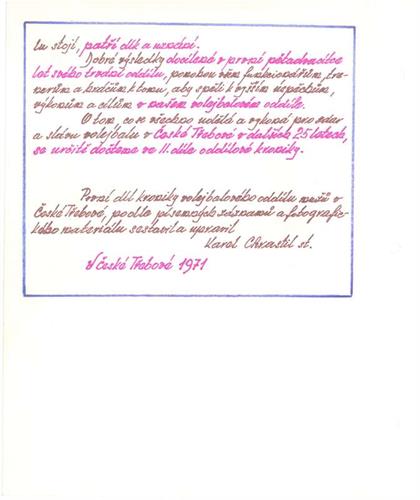 tu stojí, patří dík a uznání.
Dobré výsledky docílené v první pětadvacítce
let svého trvání oddílu, pomohou všem funkcionářům, tre-
nérům a hráčům k tomu, aby spěli k vyšším úspěchům,
výkonům a cílům v našem volejbalovém oddíle.
O tom, co vše všechno udělá a vykoná pro zdar
a slávu volejbalu v České Třebové v dalších 25 letech,
se určitě dočteme ve II. díle oddílové kroniky.
První díl kroniky volejbalového oddílu mužů v
České Třebové, podle písemných záznamů a fotografic-
kého materiálu sestavil a upravil
Karel Chrastil st.
V České Třebové 1971